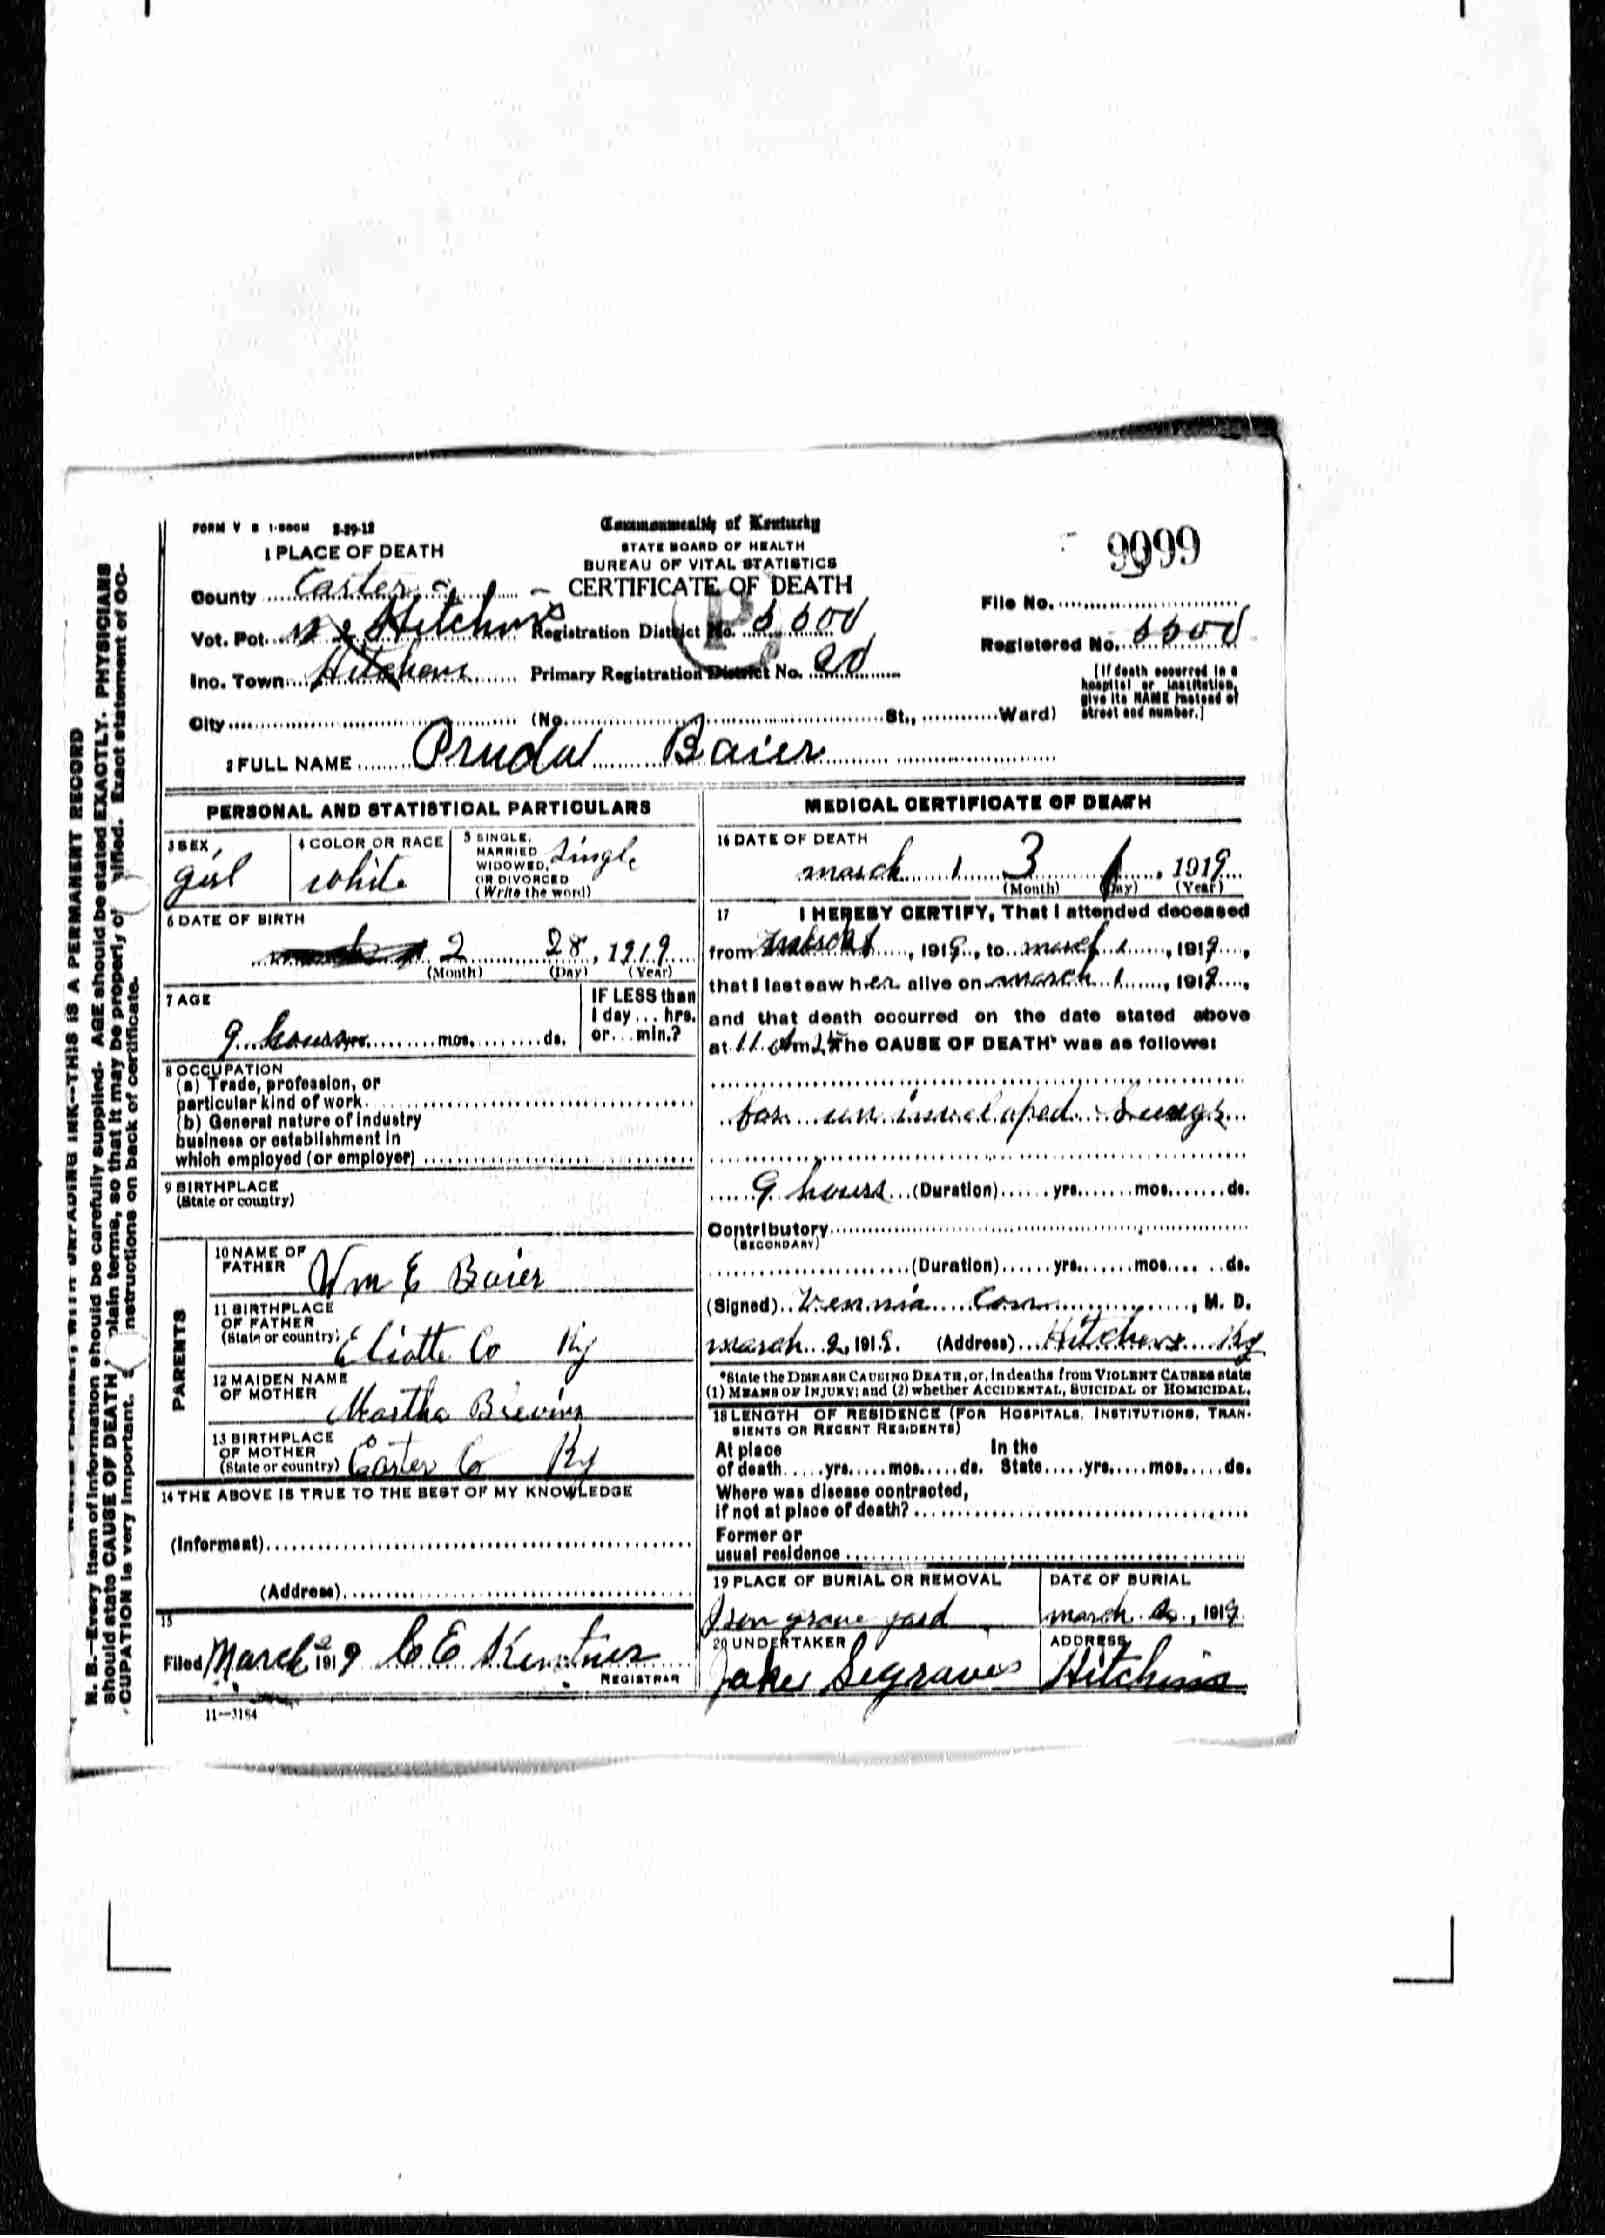 FORM V S 1-500M 2-29-12
Commonwealth of Kentucky
STATE BOARD OF HEALTH
BUREAU OF VITAL STATISTICS
CERTIFICATE OF DEATH
9099
1 PLACE OF DEATH
County Carter
Vot. Pct. Hitchins Registration District No. 5500
File No.
Registered No. 5500
Inc. Town Hitchens Primary Registration District No. 20
City (No. St., Ward)
[If death occurred in a
hospital or institution,
give its NAME instead of
street and number.]
2 FULL NAME Pruda Baier
PERSONAL AND STATISTICAL PARTICULARS
3 SEX girl
4 COLOR OR RACE white
5 SINGLE, MARRIED WIDOWED, OR DIVORCED (Write the word) Single
6 DATE OF BIRTH
2 28, 1919
(Month) (Day) (Year)
7 AGE
9 hours yrs. mos. ds.
IF LESS than
1 day ... hrs.
or ... min.?
8 OCCUPATION
(a) Trade, profession, or
particular kind of work
(b) General nature of industry
business or establishment in
which employed (or employer)
9 BIRTHPLACE
(State or country)
PARENTS
10 NAME OF FATHER Wm E Baier
11 BIRTHPLACE OF FATHER (State or country) Eliotte Co Ky
12 MAIDEN NAME OF MOTHER Martha
13 BIRTHPLACE OF MOTHER (State or country) Carter Co Ky
14 THE ABOVE IS TRUE TO THE BEST OF MY KNOWLEDGE
(Informant)
(Address)
15
Filed March 2 1919 C E
REGISTRAR
11-3184
MEDICAL CERTIFICATE OF DEATH
16 DATE OF DEATH
march 1 3 1, 1919
(Month) (Day) (Year)
17 I HEREBY CERTIFY, That I attended deceased
from , 1919, to march 1, 1919,
that I last saw her alive on march 1, 1919,
and that death occurred on the date stated above
at 11 Am. The CAUSE OF DEATH* was as follows:
for Lungs
9 hours (Duration) yrs. mos. ds.
Contributory
(SECONDARY)
(Duration) yrs. mos. ds.
(Signed) , M. D.
march 2, 1919. (Address) Hitchins Ky
*State the DISEASE CAUSING DEATH, or, in deaths from VIOLENT CAUSES state
(1) MEANS OF INJURY; and (2) whether ACCIDENTAL, SUICIDAL or HOMICIDAL.
18 LENGTH OF RESIDENCE (FOR HOSPITALS, INSTITUTIONS, TRAN-
SIENTS OR RECENT RESIDENTS)
At place In the
of death yrs. mos. ds. State yrs. mos. ds.
Where was disease contracted,
if not at place of death?
Former or
usual residence
19 PLACE OF BURIAL OR REMOVAL
grave yard
DATE OF BURIAL
march 2, 1919
20 UNDERTAKER
Jake Segraves
ADDRESS
Hitchins
RECORD
THIS IS A PERMANENT
N. B.—Every item of information should be carefully supplied. AGE should be stated EXACTLY. PHYSICIANS
should state CAUSE OF DEATH plain terms, so that it may be properly Exact statement of OC-
CUPATION is very important. nstructions on back of certificate.